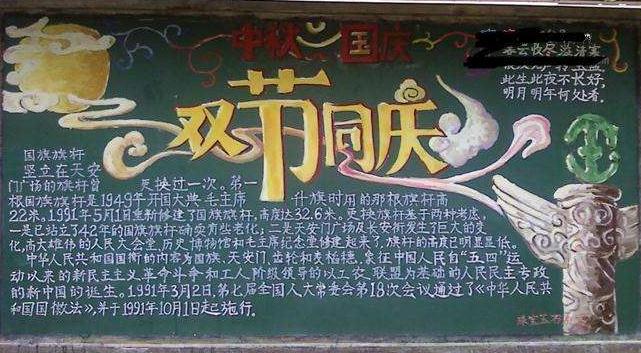 中秋 国庆
双节同庆
暮云收尽溢清寒
此生此夜不长好,
明月明年何处看。
国族旗杆
竖立在天安
门广场的旗杆曾 更换过一次。第一
根国旗旗杆是1949年开国大典毛主席 升旗时用的那根旗杆高
22米。1991年5月1日重新修建了国旗旗杆,高度达32.6米。更换旗杆基于两种考虑,
一是已站立了42年的国旗旗杆确实有些老化;二是天安门广场及长安街发生了巨大的变
化,高大雄伟的人民大会堂、历史博物馆和毛主席纪念堂修建起来了,旗杆的高度已明显低。
中华人民共和国国徽的内容为国旗、天安门、齿轮和麦稻穗,象征中国人民自“五四”运
动以来的新民主主义革命斗争和工人阶级领导的以工农联盟为基础的人民民主专政
的新中国的诞生。1991年3月2日,第七届全国人大常委会第18次会议通过了《中华人民共
和国国徽法》,并于1991年10月1日起施行。